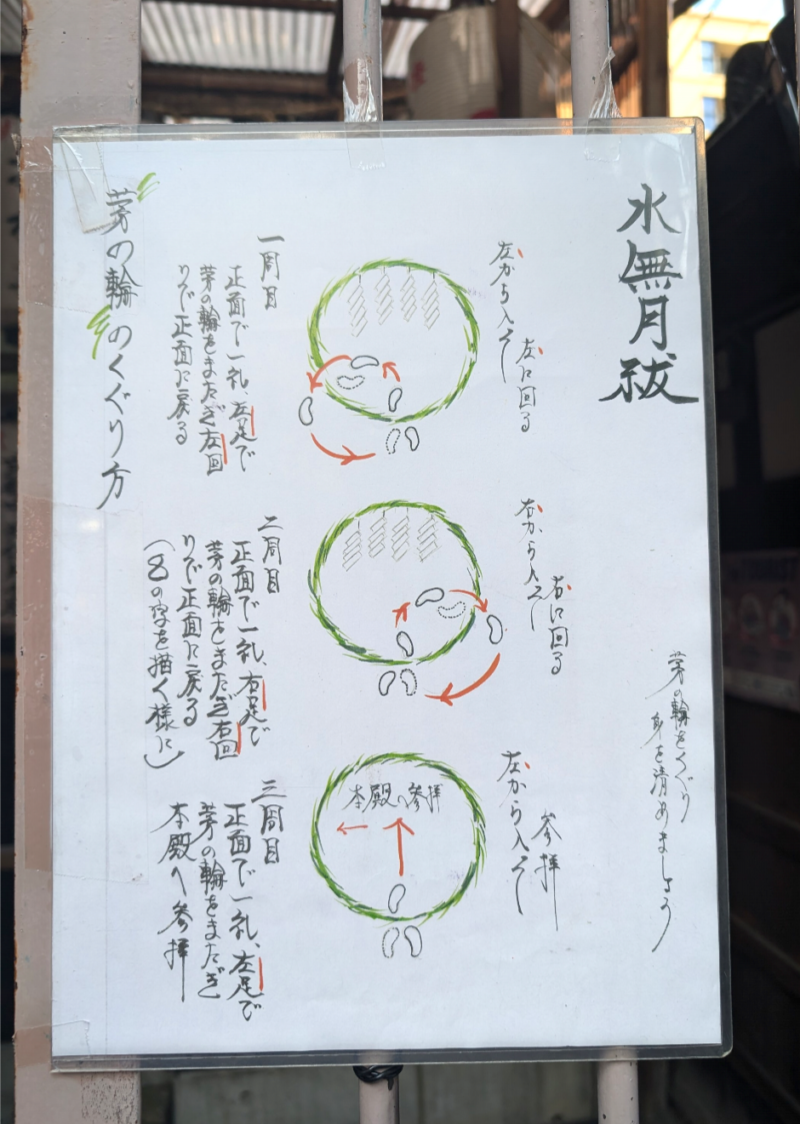 水無月祓
茅の輪をくぐり
身を清めましょう
左から入って
左に回る
右から入って
右に回る
左から入って
参拝
本殿へ参拝
一周目
正面で一礼、左足で
茅の輪をまたぎ左回
りで正面に戻る
二周目
正面で一礼、右足で
茅の輪をまたぎ右回
りで正面に戻る
(8の字を描く様に)
三周目
正面で一礼、左足で
茅の輪をまたぎ
本殿へ参拝
茅の輪のくぐり方